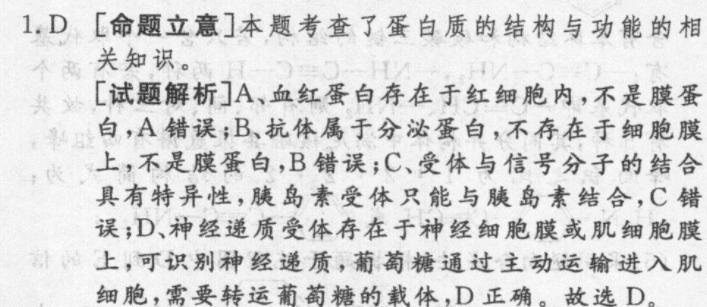 1. D [命题立意]本题考查了蛋白质的结构与功能的相
关知识。
[试题解析]A、血红蛋白存在于红细胞内,不是膜蛋
白,A错误;B、抗体属于分泌蛋白,不存在于细胞膜
上,不是膜蛋白,B错误;C、受体与信号分子的结合
具有特异性,胰岛素受体只能与胰岛素结合,C错
误;D、神经递质受体存在于神经细胞膜或肌细胞膜
上,可识别神经递质,葡萄糖通过主动运输进入肌
细胞,需要转运葡萄糖的载体,D正确。故选D。